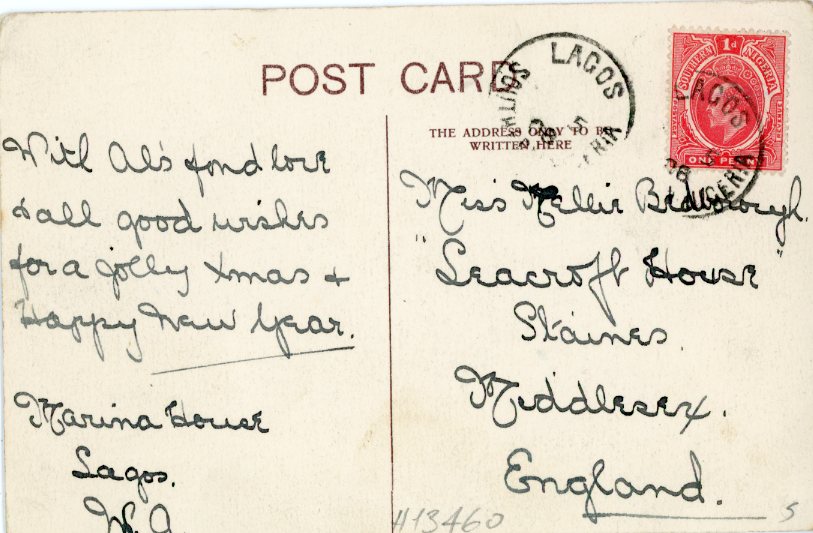 POST CARD
THE ADDRESS ONLY TO BE
WRITTEN HERE
LAGOS
SOUTHERN NIGERIA
1d
ONE PENNY
LAGOS
With Al's fond love
& all good wishes
for a jolly Xmas &
Happy New Year.
Marina House
Lagos.
W.A.
Miss Nellie Bedborough.
"Seacroft House"
Staines.
Middlesex.
England.
H13460
S